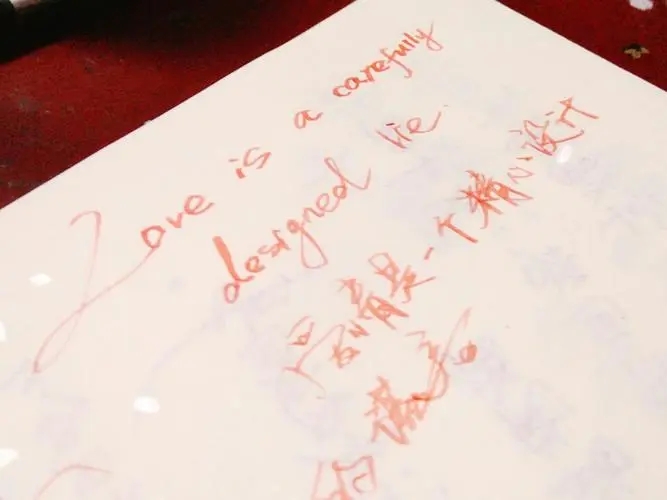 Love is a carefully
designed lie.
爱情是一个精心设计
的谎言